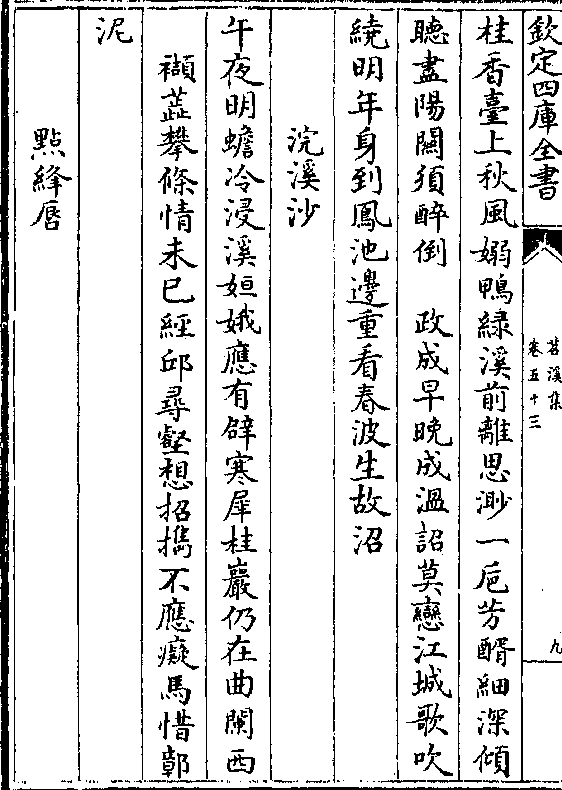 欽定四庫全書
苕溪集
卷五十三
九
桂香臺上秋風嫋鴨緑溪前離思渺一巵芳醑細深傾
聽盡陽關須醉倒　政成早晚成溫詔莫戀江城歌吹
繞明年身到鳳池邊重看春波生故沼
浣溪沙
午夜明蟾冷浸溪姮娥應有辟寒犀桂巖仍在曲闌西
襭蘂攀條情未已經邱尋壑想招擕不應癡馬惜鄣
泥
點絳唇